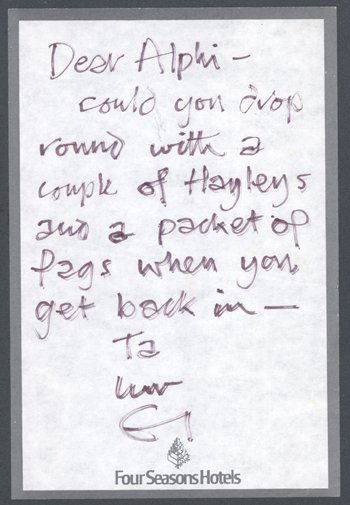 Dear Alphi –
could you drop
round with a
couple of Hayleys
and a packet of
fags when you
get back in –
Ta
luv
G
Four Seasons Hotels